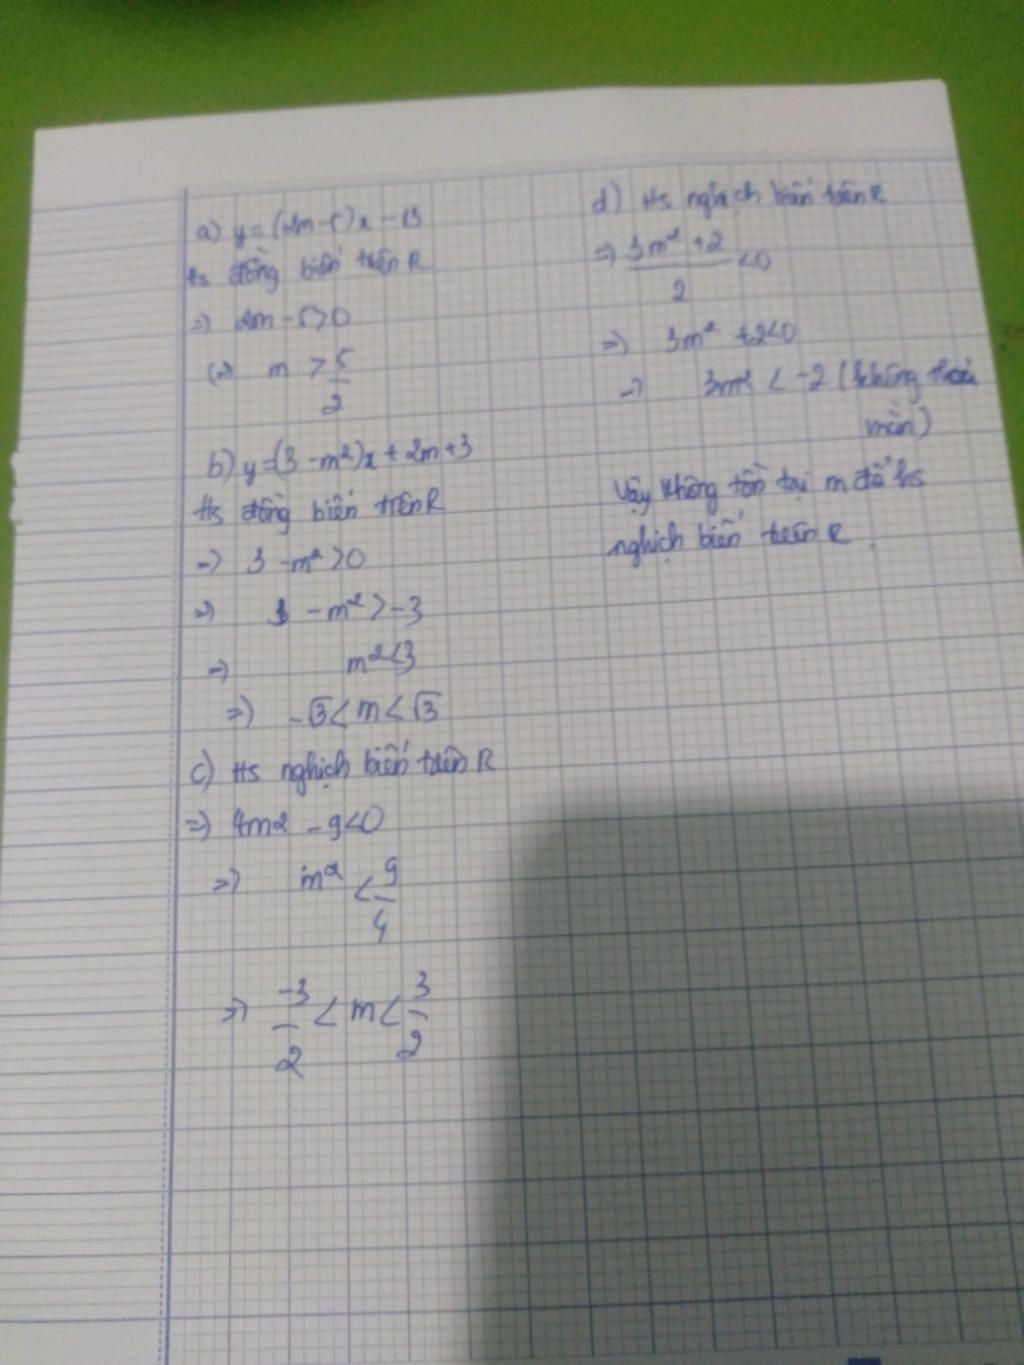 a) y = (2m - 5)x - 13
Hs đồng biến trên R
=> 2m - 5 > 0
(=) m > 5/2
b) y = (3 - m²)x + 2m + 3
Hs đồng biến trên R
=> 3 - m² > 0
=> - m² > -3
=> m² < 3
=> -√3 < m < √3
c) Hs nghịch biến trên R
=> 4m2 - 9 < 0
=> m² < 9/4
=> -3/2 < m < 3/2
d) Hs nghịch biến trên R
=> 3m² + 2 / 2 < 0
=> 3m² + 2 < 0
=> 3m² < -2 (không thoả
mãn)
Vậy không tồn tại m để hs
nghịch biến trên R.